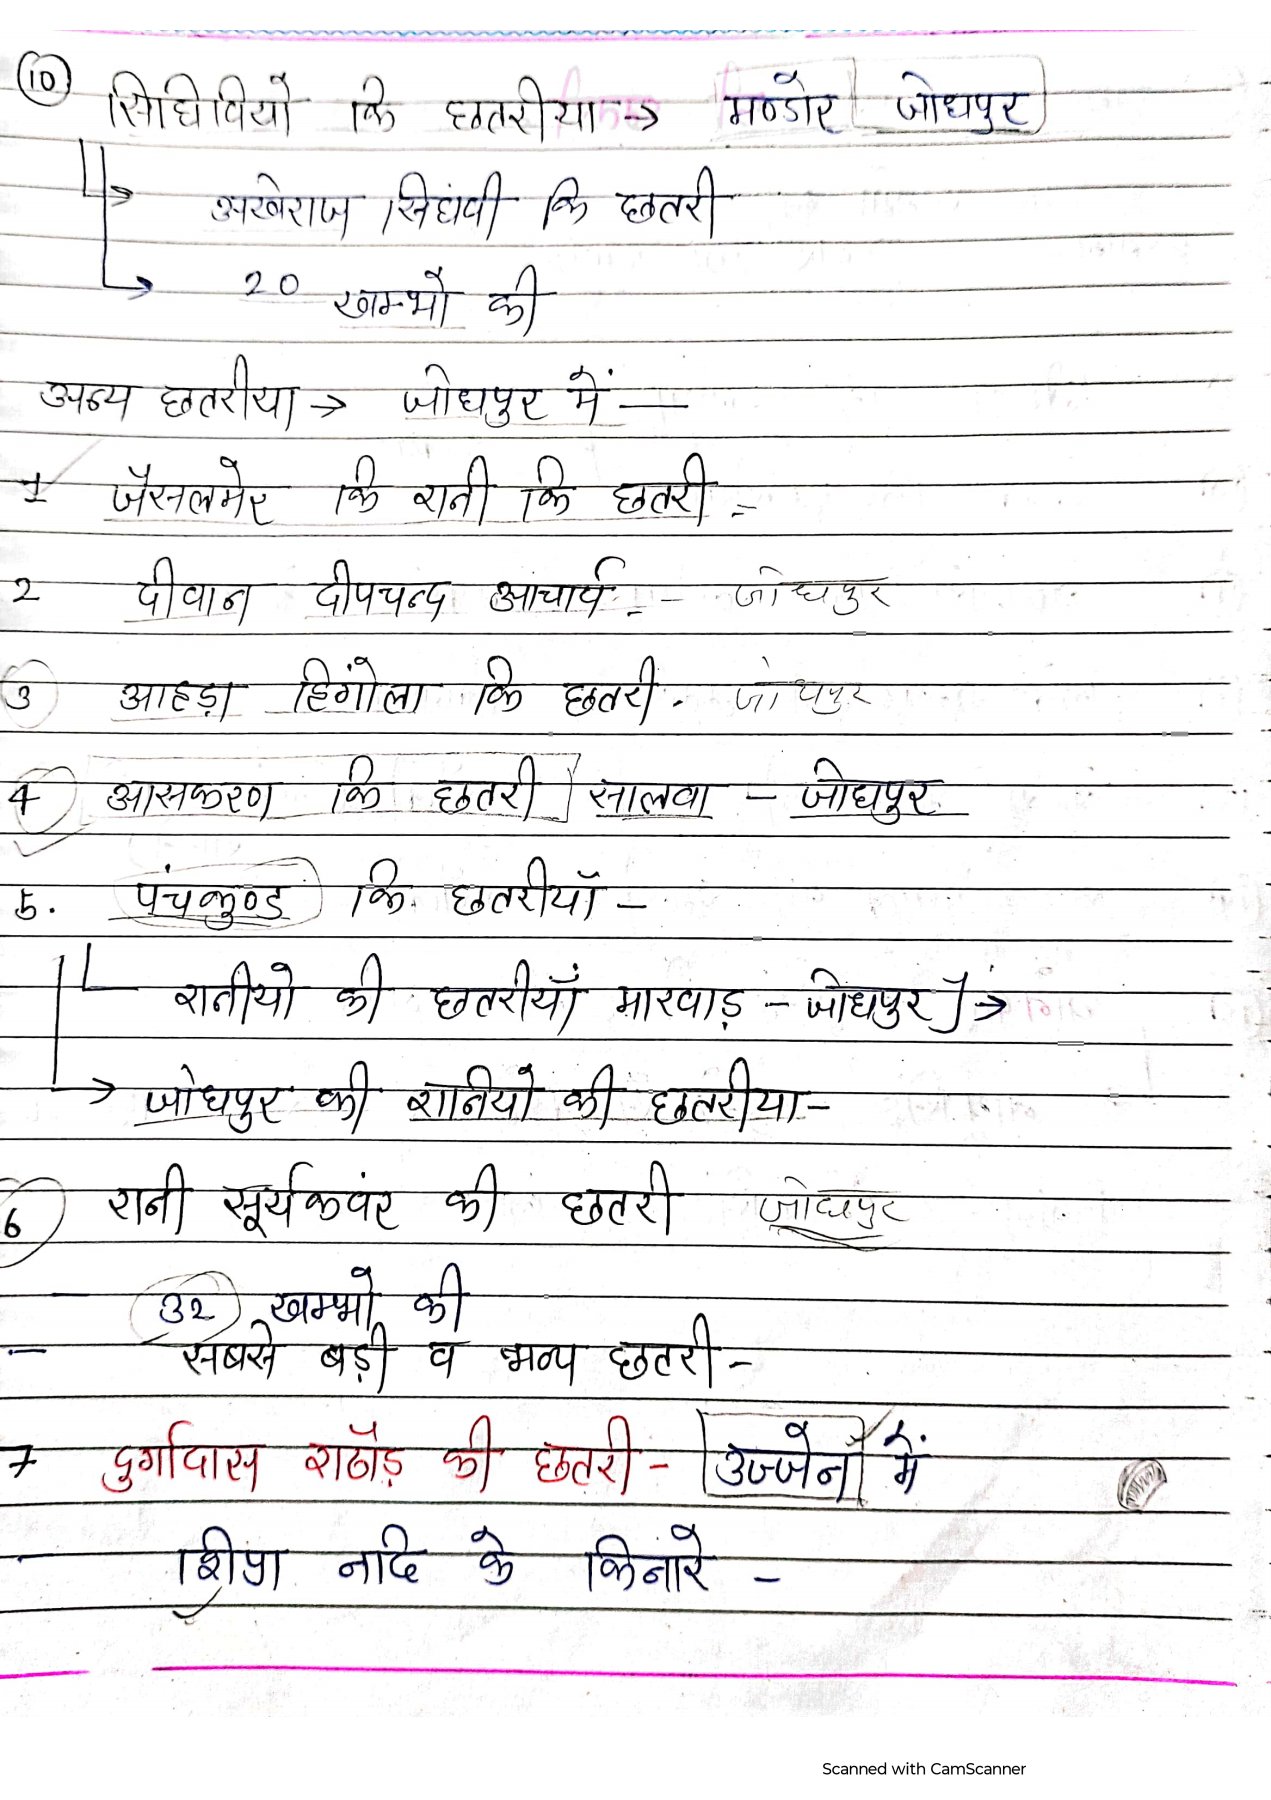 10 सिंघिवियों कि छतरीया → मण्डोर जोधपुर
→ अखेराज सिंघवी कि छतरी
→ 20 खम्भो की
अन्य छतरीया → जोधपुर में —
1 जैसलमेर कि रानी कि छतरी -
2 दीवान दीपचन्द आचार्य - जोधपुर
3 आहड़ा हिगोंला कि छतरी - जोधपुर
4 आसकरण कि छतरी सालवा - जोधपुर
5. पंचकुण्ड कि छतरीयाँ -
रानीयो की छतरीयाँ मारवाड़ - जोधपुर ] →
→ जोधपुर की रानियो की छतरीया -
6 रानी सूर्यकवंर की छतरी जोधपुर
- 32 खम्भो की
- सबसे बड़ी व भव्य छतरी -
7 दुर्गादास राठौड़ की छतरी - उज्जैन में
- शिप्रा नदि के किनारे -
Scanned with CamScanner